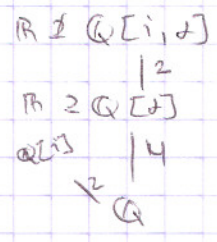 ℝ ⊉ ℚ[i, α]
| 2
ℝ ⊇ ℚ[α]
ℚ[i] | 4
\ 2
ℚ